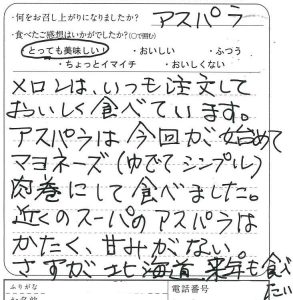 ・何をお召し上がりになりましたか？ アスパラ
・食べたご感想はいかがでしたか？（○で囲む）
とっても美味しい！ ・おいしい ・ふつう
・ちょっとイマイチ ・おいしくない
メロンは、いつも注文して
おいしく食べています。
アスパラは今回が、始めて
マヨネーズ（ゆでてシンプル）
肉巻にして食べました。
近くのスーパのアスパラは
かたく、甘みがない。
さすが北海道 来年も食べ
たい
ふりがな 電話番号